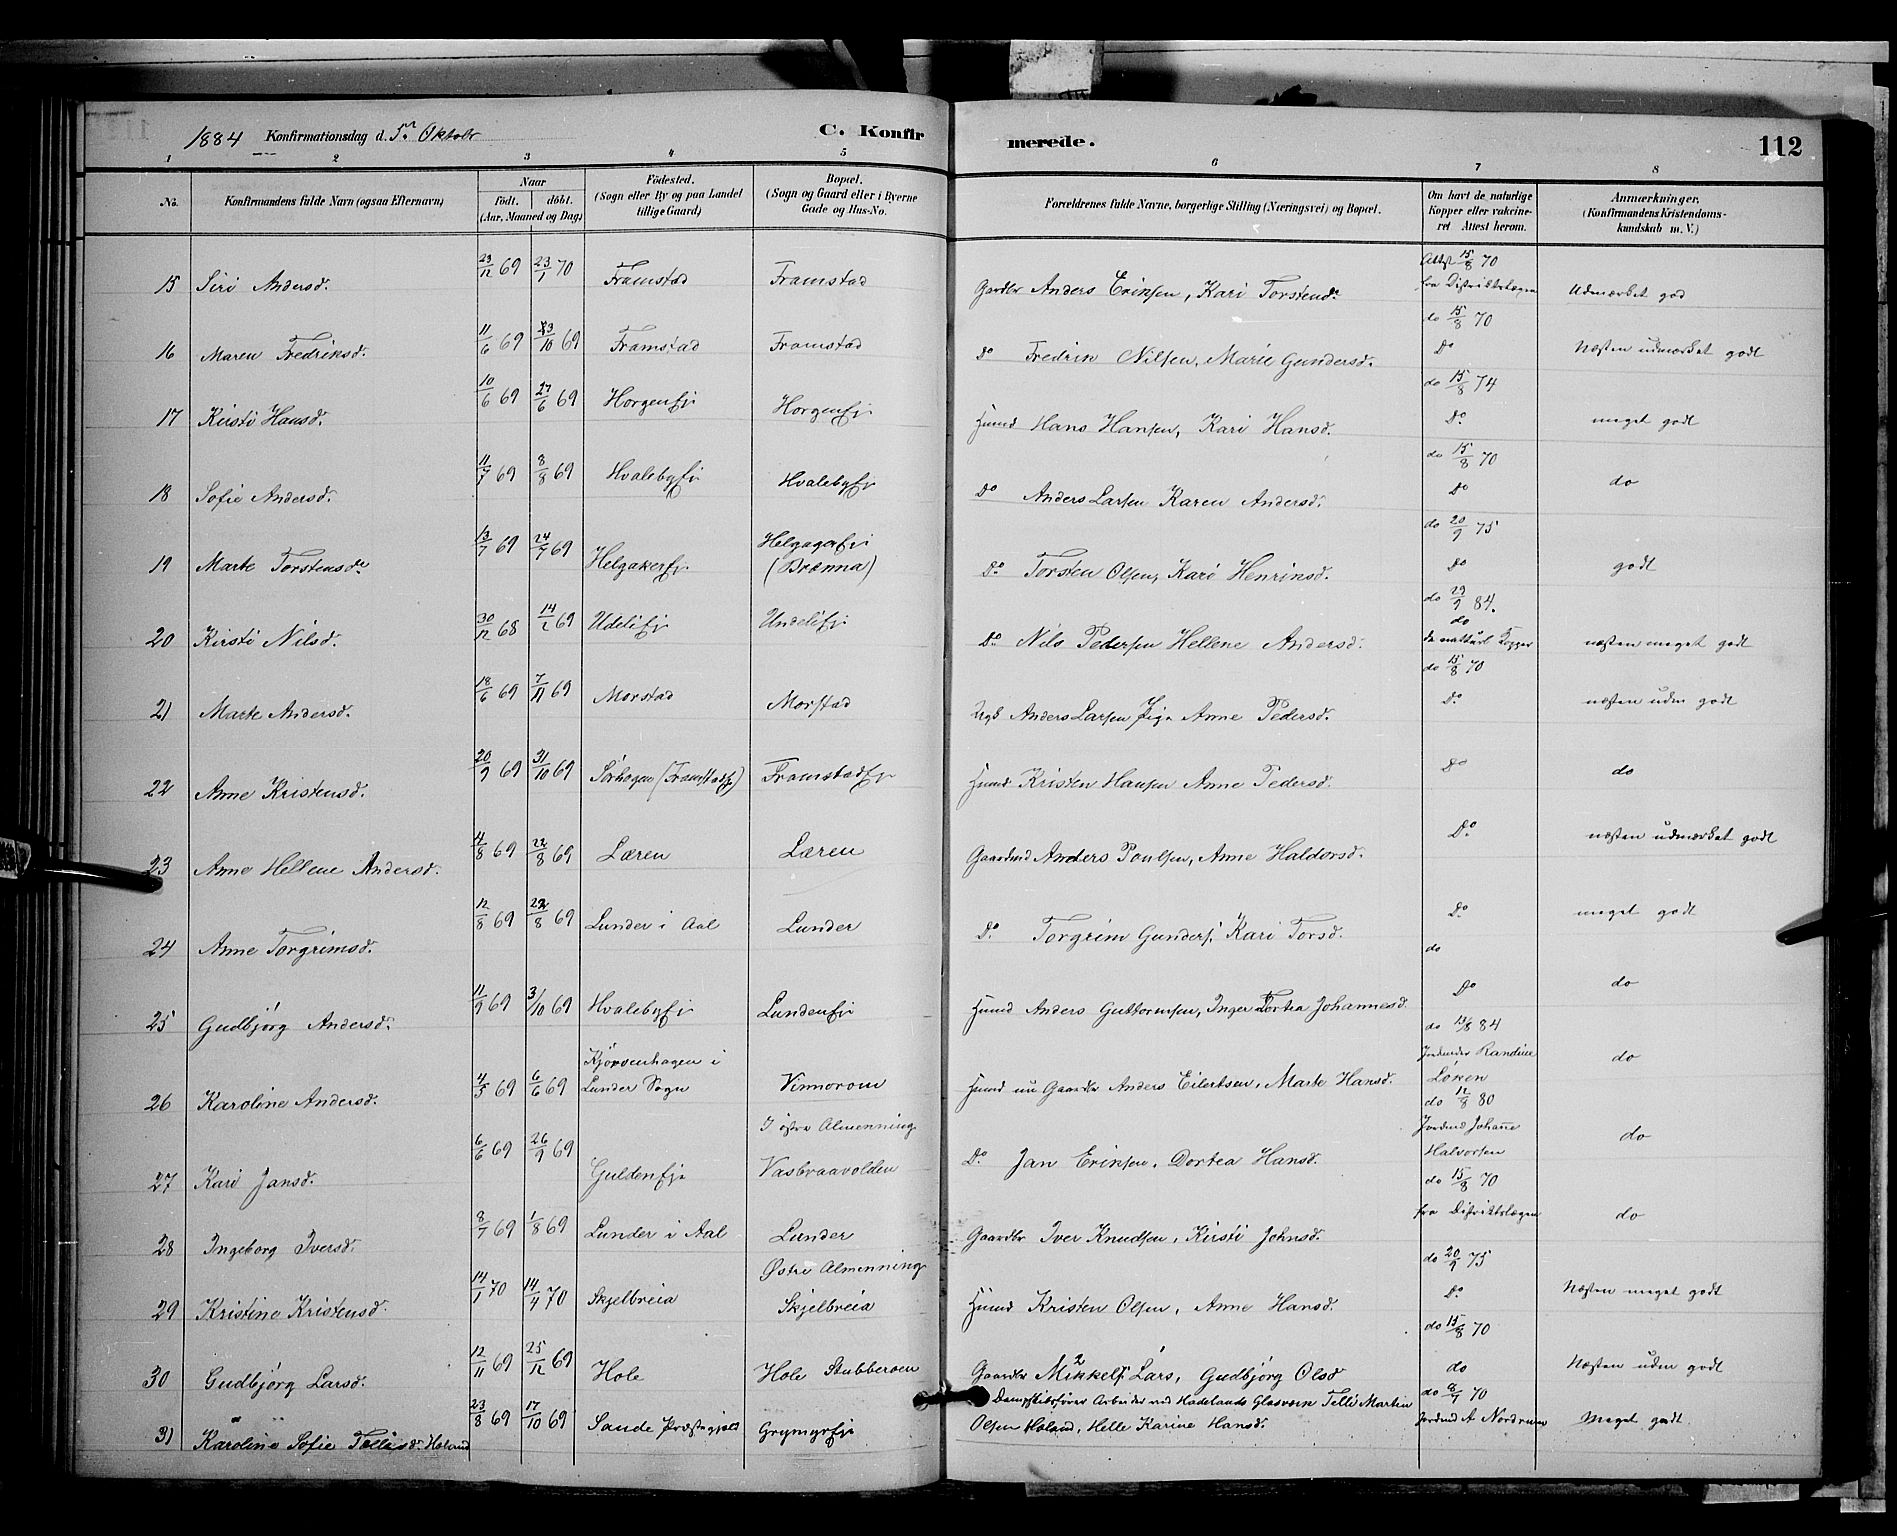 1884 Konfirmationsdag d. 5te Oktobr C. Konfir
merede. 112
1 2 3 4 5 6 7 8
No. Konfirmandens fulde Navn (ogsaa Efternavn) Naar født. døbt. (Aar, Maaned og Dag) Födested. (Sogn eller By og paa Landet tillige Gaard) Bopæl. (Sogn og Gaard eller i Byerne Gade og Hus-No. Forældrenes fulde Navne, borgerlige Stilling (Næringsvei) og Bopæl. Om havt de naturlige Kopper eller vakcineret Attest herom. Anmærkninger. (Konfirmandens Kristendomskundskab m. V.)
15 Siri Andersd. 23/12 69 23/1 70 Framstad Framstad Gardbr Anders Eriksen, Kari Torstensdr Attst 15/8 70 fra Distriktslægen Udmærket god
16 Maren Fredriksd. 11/6 69 23/10 69 Framstad Framstad Do Fredrik Nilsen, Marie Gundersd. do 15/8 70 Do Næsten udmærket godt
17 Kirsti Hansd. 10/6 69 27/6 69 Horgenfj. Horgenfj. Husmd Hans Hansen, Kari Hansd. do 15/8 74 Do meget godt
18 Sofie Andersd. 11/7 69 8/8 69 Hvalebyfj. Hvalebyfj. Do Anders Larsen Karen Andersd. do 15/8 70 Do do
19 Marte Torstensdr 13/7 69 24/7 69 Helgakerfj. Helgagerfj. (Brænna) Do Torsten Olsen, Kari Henriksd. do 20/9 75 Do godt
20 Kirsti Nilsd. 30/12 68 14/2 69 Udelifj. Undelifj. Do Nils Pedersen Hellene Andersd. do 29/9 84. do de natturl Kopper næsten meget godt
21 Marte Andersd. 18/6 69 7/11 69 Morstad Morstad Ugk Anders Larsen Pige Anne Pedersd. do 15/8 70 Do næsten udm godt
22 Anne Kristensd. 20/9 69 31/10 69 Sørhagen (Framstadfj) Framstadfj. Husmd Kristen Hansen Anne Pedersd. Do do
23 Anne Hellene Andersd. 4/8 69 22/8 69 Læren Læren Gaardmd Anders Poulsen, Anne Haldorsd. Do næsten udmærket godt
24 Anne Torgrimsd. 12/8 69 22/8 69 Lunder i Aal Lunder Do Torgrim Gunders. Kari Torsd. Do meget godt
25 Gudbjørg Andersd. 11/9 69 3/10 69 Hvalebyfj. Lundenfj. Husmd Anders Guttormsen, Inger Tortea Johannesd. do Do do
26 Karoline Andersd. 4/5 69 6/6 69 Kjørvenhagen i Lunder Sogn Vinnorom Husmd nu Gaardbr Anders Eilertsen, Marte Hansd. do 13/8 84 Jordmder Randine Loken do
27 Kari Jansd. 6/6 69 26/9 69 Guldenfj. I østre Almenning Vasbraavolden Do Jan Eriksen, Dortea Hansd. do 12/8 80 Jordmd Johanne Halvorsen do
28 Ingeborg Iversd. 8/7 69 1/8 69 Lunder i Aal Lunder Gaardbr Iver Knudsen, Kirsti Johnsd. do 15/8 70 fra Distriktslægen do
29 Kristine Kristensd. 14/1 70 14/4 70 Skjelbreia Østre Almenning Skjelbreia Husmd Kristen Olsen, Anne Hansd. do 20/9 75 Do Næsten meget godt
30 Gudbjørg Larsd. 12/11 69 25/12 69 Hole Hole Stubberoen Gaardbr Mikkels Lars, Gudbjørg Olsd do 15/8 70 do Næsten udm godt
31 Karoline Sofie Tellisd. Holand 23/8 69 17/10 69 Sande Præstegjeld Grymyrfj. Dampskibsfører Arbeider ved Hadelands Glasverk Telli Martin Olsen Holand, Helle Karine Hansd. do 8/7 70 Jordmd A Nordrum Meget godt.